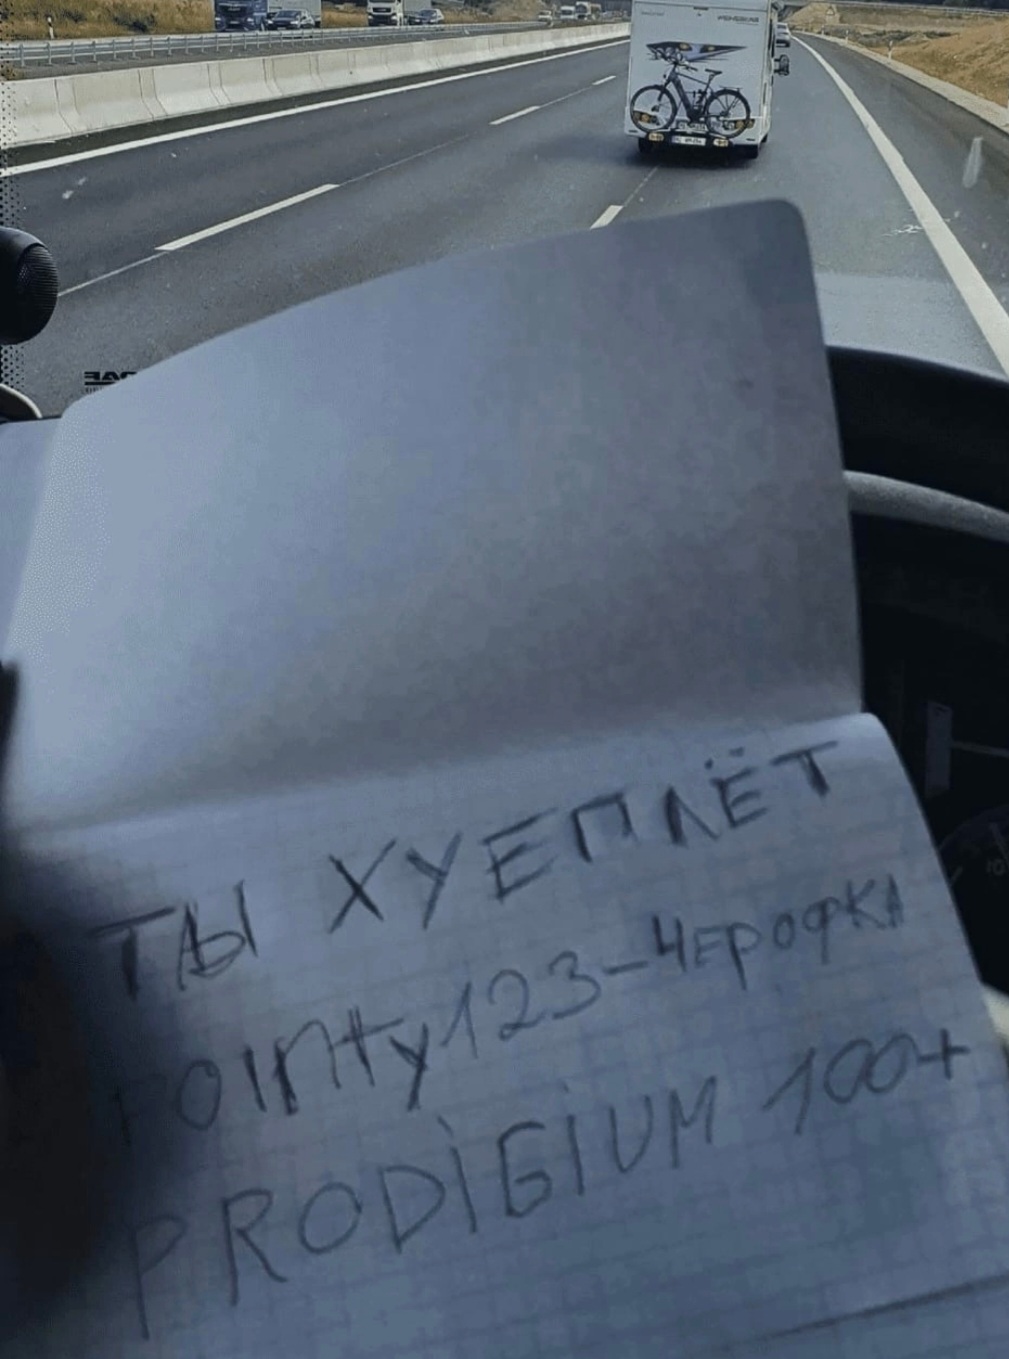 ТЫ ХУЕПЛЁТ
Pointy123-Черофка
PRODİGİUM 100+